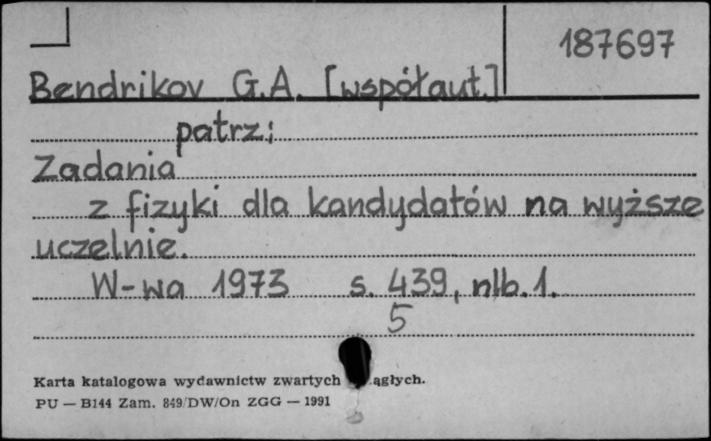 187697
Bendrikov G.A. [współaut.]
patrz:
Zadania
z fizyki dla kandydatów na wyższe
uczelnie.
W-wa 1973 s. 439, nlb. 1.
5
Karta katalogowa wydawnictw zwartych
PU — B144 Zam. 849/DW/On ZGG — 1991